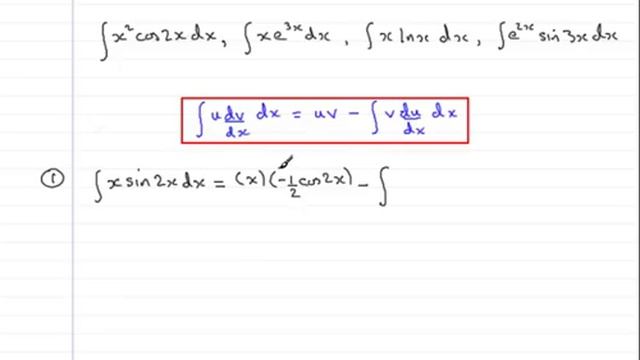 ∫x²cos2x dx, ∫xe³ˣdx, ∫x lnx dx, ∫e²ˣ sin3x dx
∫u dv/dx dx = uv - ∫v du/dx dx
① ∫x sin2x dx = (x)(-1/2 cos2x) - ∫